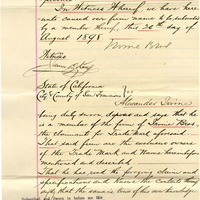 In Witness Whereof, we have here
unto caused our firm name to be subscribed
by a member thereof, this 26th day of
August 1898
Witness
State of California
City & County of San Francisco
Alexander
being duly sworn deposes and says that he
is a member of the firm of Bros
the claimants for Trade Mark aforesaid
That said firm are the exclusive owners
of the Trade Mark and Name hereinbefore
mentioned and described
That he has read the foregoing claim and
specifications and knows the contents there
of, that the same is true of his own knowledge
Subscribed and sworn to before me this